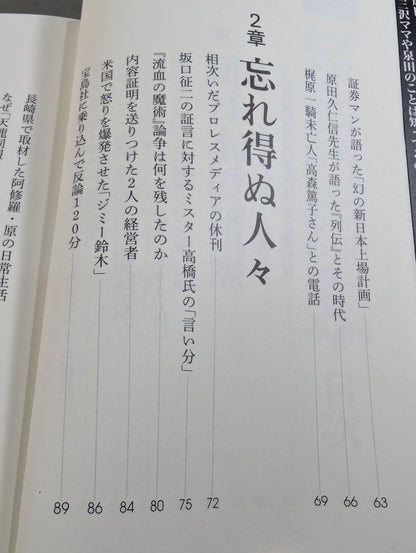 三沢ママや
証券マンが語った「幻の新日本上場計画」 63
原田久仁信先生が語った『列伝』とその時代 66
梶原一騎未亡人「高森篤子さん」との電話 69
2章 忘れ得ぬ人々
相次いだプロレスメディアの休刊 72
坂口征二の証言に対するミスター高橋氏の「言い分」 75
『流血の魔術』論争は何を残したのか 80
内容証明を送りつけた2人の経営者 84
米国で怒りを爆発させた「ジミー鈴木」 86
宝島社に乗り込んで反論120分 89
長崎県で取材した阿修羅・原の日常生活
なぜ「天龍同盟